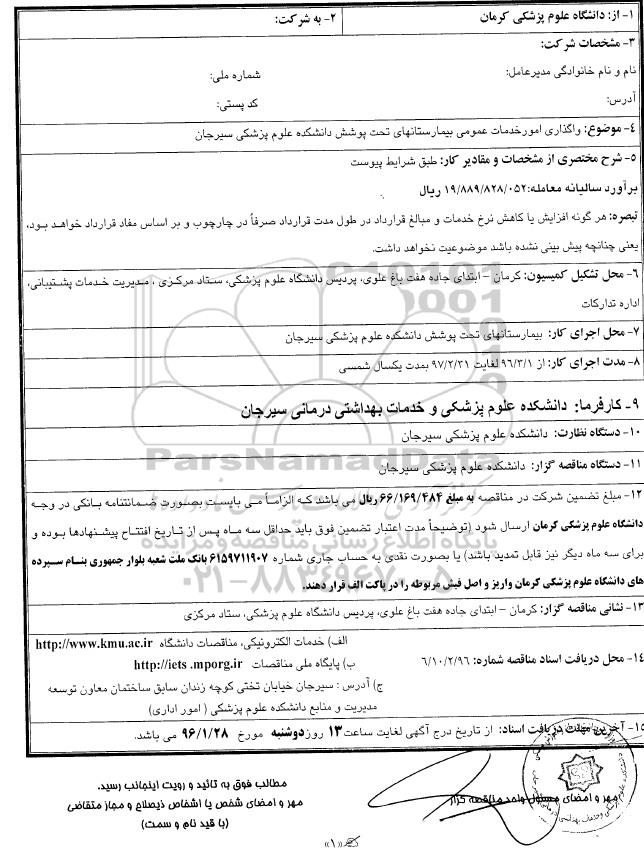 ۱- از: دانشگاه علوم پزشکی کرمان
۲- به شرکت:
۳- مشخصات شرکت:
نام و نام خانوادگی مدیرعامل:
شماره ملی:
آدرس:
کد پستی:
۴- موضوع: واگذاری امورخدمات عمومی بیمارستانهای تحت پوشش دانشکده علوم پزشکی سیرجان
۵- شرح مختصری از مشخصات و مقادیر کار: طبق شرایط پیوست
برآورد سالیانه معامله:۱۹/۸۸۹/۸۲۸/۰۵۲ ریال
تبصره: هر گونه افزایش یا کاهش نرخ خدمات و مبالغ قرارداد در طول مدت قرارداد صرفاً در چارچوب و بر اساس مفاد قرارداد خواهد بود،
یعنی چنانچه پیش بینی نشده باشد موضوعیت نخواهد داشت.
۶- محل تشکیل کمیسیون: کرمان – ابتدای جاده هفت باغ علوی، پردیس دانشگاه علوم پزشکی، ستاد مرکزی ، مدیریت خدمات پشتیبانی،
اداره تدارکات
۷- محل اجرای کار: بیمارستانهای تحت پوشش دانشکده علوم پزشکی سیرجان
۸- مدت اجرای کار: از ۹۶/۳/۱ لغایت ۹۷/۲/۳۱ بمدت یکسال شمسی
۹- کارفرما: دانشکده علوم پزشکی و خدمات بهداشتی درمانی سیرجان
۱۰- دستگاه نظارت: دانشکده علوم پزشکی سیرجان
۱۱- دستگاه مناقصه گزار: دانشکده علوم پزشکی سیرجان
ParsNamadData
۱۲- مبلغ تضمین شرکت در مناقصه به مبلغ ۶۶/۱۶۹/۴۸۴ ریال می باشد که الزاماً می بایست بصورت ضمانتنامه بانکی در وجه
دانشگاه علوم پزشکی کرمان ارسال شود (توضیحاً مدت اعتبار تضمین فوق باید حداقل سه ماه پس از تاریخ افتتاح پیشنهادها بوده و
برای سه ماه دیگر نیز قابل تمدید باشد) یا بصورت نقدی به حساب جاری شماره ۶۱۵۹۷۱۱۹۰۷ بانک ملت شعبه بلوار جمهوری بنام سپرده
پایگاه اطلاع رسانی مناقصه و مزایده
های دانشگاه علوم پزشکی کرمان واریز و اصل فیش مربوطه را در پاکت الف قرار دهند.
۰۲۱-۸۸۳۴۹۶۷۰-۵
۱۳- نشانی مناقصه گزار: کرمان – ابتدای جاده هفت باغ علوی، پردیس دانشگاه علوم پزشکی، ستاد مرکزی
۱۴- محل دریافت اسناد مناقصه شماره: ۶/۱۰/۲/۹۶
الف) خدمات الکترونیکی، مناقصات دانشگاه http://www.kmu.ac.ir
ب) پایگاه ملی مناقصات http://iets .mporg.ir
ج) آدرس : سیرجان خیابان تختی کوچه زندان سابق ساختمان معاون توسعه
مدیریت و منابع دانشکده علوم پزشکی ( امور اداری)
۱۵- آخرین مهلت دریافت اسناد: از تاریخ درج آگهی لغایت ساعت ۱۳ روز دوشنبه مورخ ۹۶/۱/۲۸ می باشد.
مهر و امضای مسئول واحد مناقصه گزار
مطالب فوق به تائید و رویت اینجانب رسید.
مهر و امضای شخص یا اشخاص ذیصلاح و مجاز متقاضی
(با قید نام و سمت)
«۱»